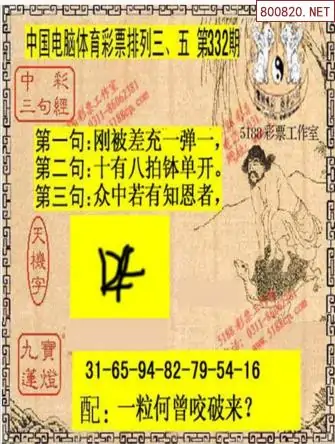 800820.NET
中国电脑体育彩票排列三、五 第332期
中彩
三句經
5188彩票工作室
第一句:刚被差充一弹一,
第二句:十有八拍钵单开。
第三句:众中若有知恩者,
天機字
九寶
蓮燈
31-65-94-82-79-54-16
配:一粒何曾咬破来?